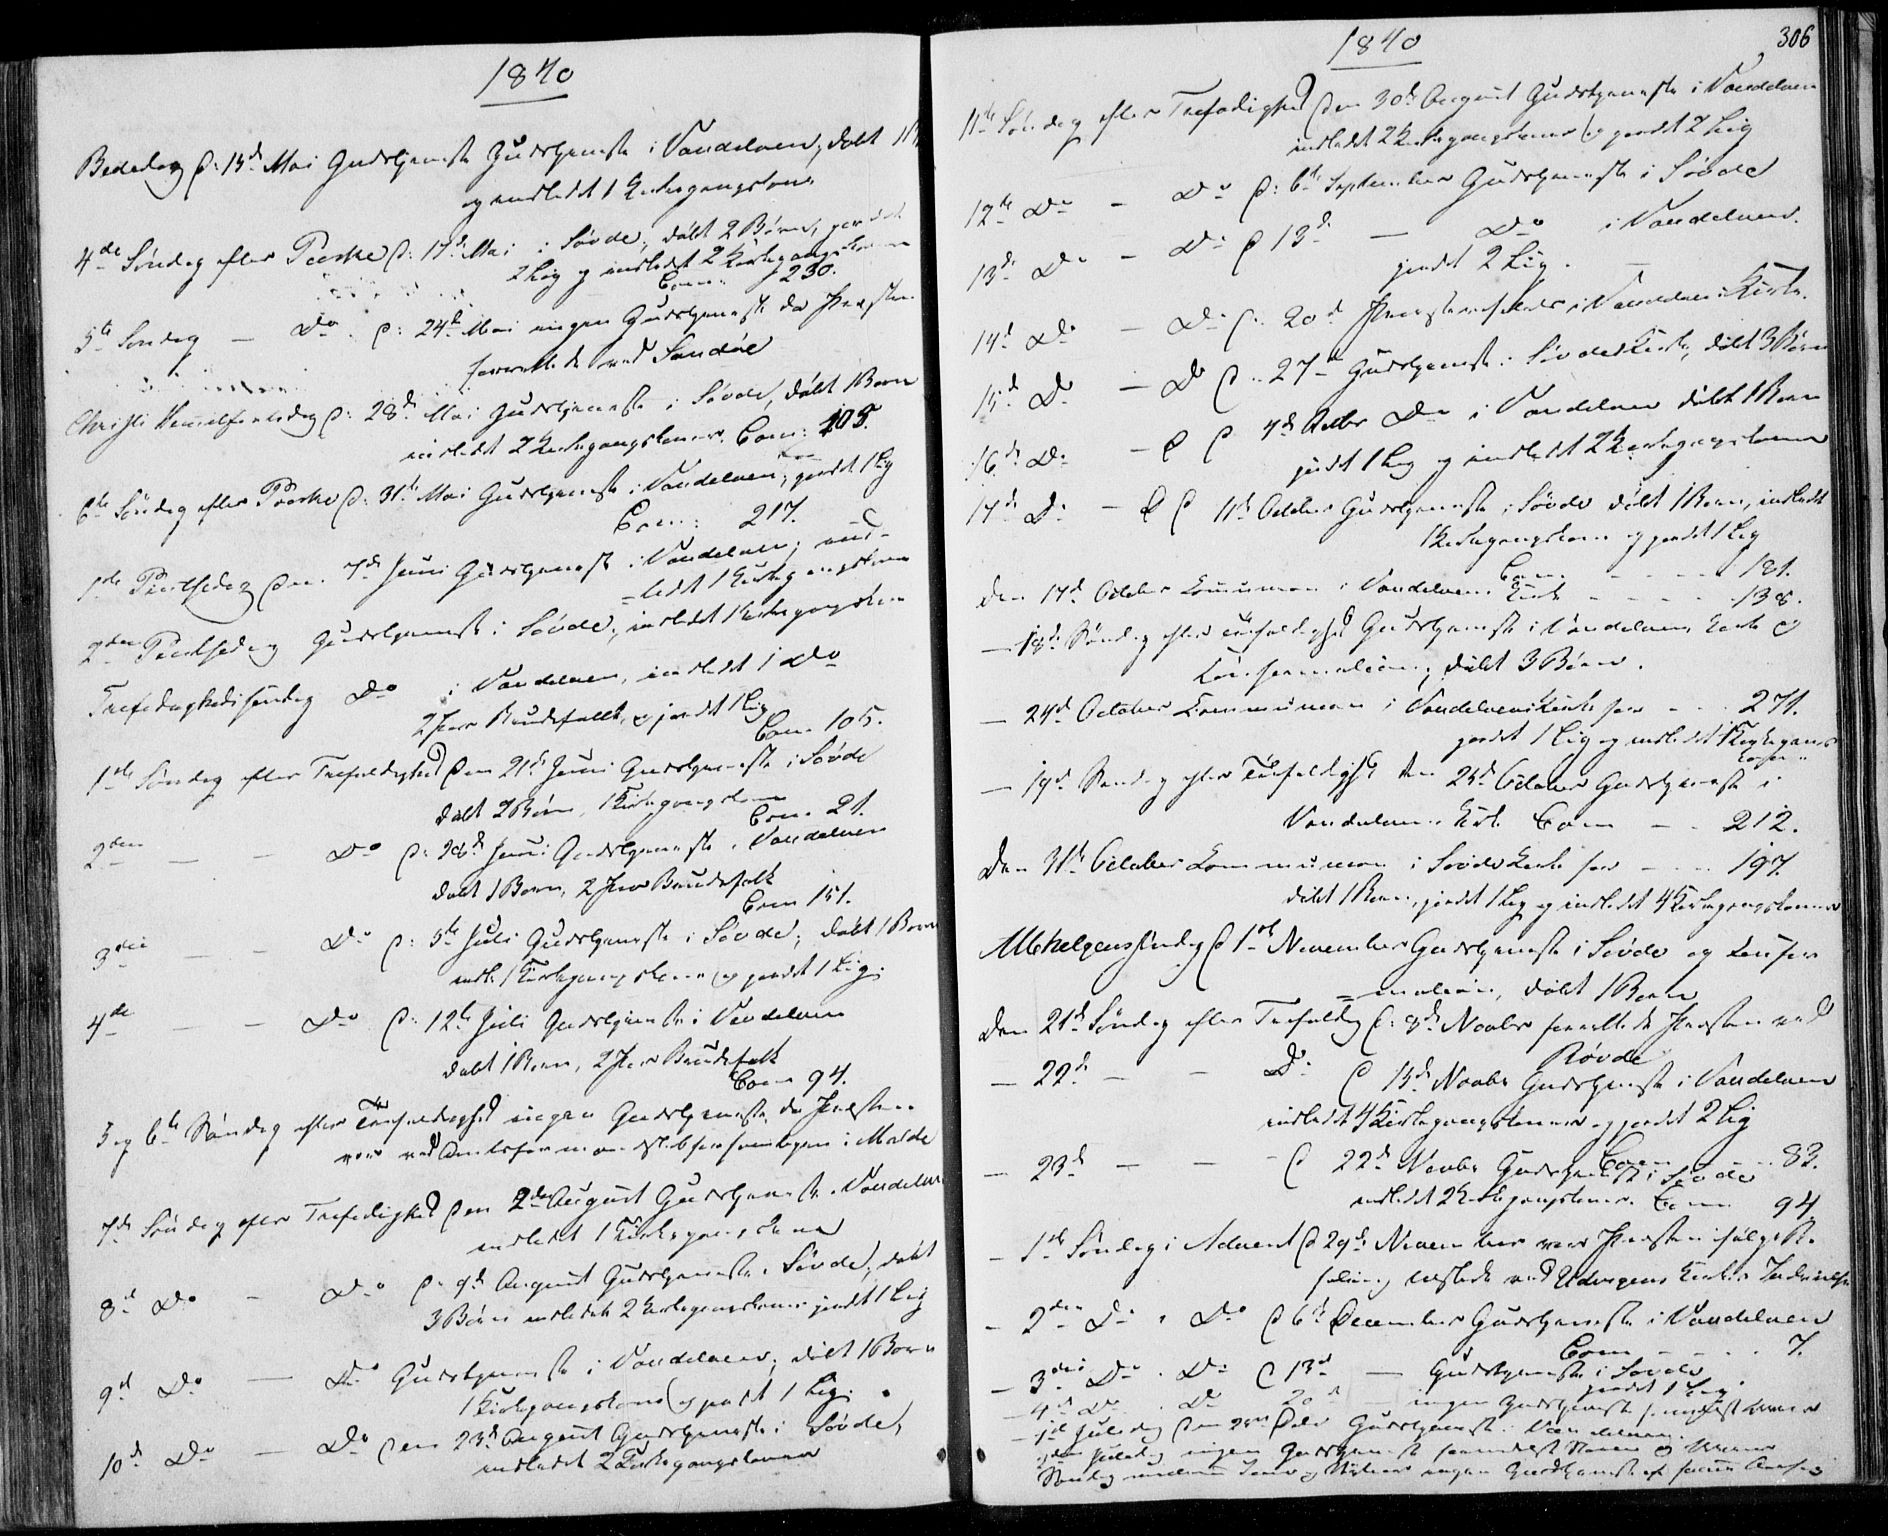 1840
Bededag d: 15d Mai Gudstjeneste Gudstjeneste i Vandelven, døbt 1
og indledet 1 Kirkegangskone
4de Søndag efter Paaske d: 17d Mai i Søvde, døbt 2 Børn, jordet
2 Lig og indledet 2 Kirkegangskoner
Com: 230.
5te Søndag — Do d: 24de Mai ingen Gudstjeneste da Præsten
forrettede ved
Christi Himmelfartsdag d: 28d Mai Gudstjeneste i Søvde, døbt 1 Barn
indledet 2 Kirkegangskoner. Com: 105.
6te Søndag efter Paaske d: 31te Mai Gudstjeneste i Vandelven, jordet 1 Lig
Com: 217.
1ste Pintsedag den 7d Juni Gudstjeneste i Vandelven, ind-
=ledt 1 Kirkegangskone
2den Pintsedag Gudstjeneste i Søvde, indledet 1 Kirkegangskone
Trefoldighedssøndag Do i Vandelven, indledet 1 Do
2 Par Brudefolk, og jordet 1 Lig
Com. 105.
1ste Søndag efter Trefoldighed den 21de Juni Gudstjeneste i Søvde
døbt 2 Børn, 1 Kirkegangskone
Com. 21.
2den — — Do d: 28d Juni Gudstjeneste i Vandelven
døbt 1 Barn, 2 Par Brudefolk
Com 151.
3die — — Do d: 5te Juli Gudstjeneste i Søvde, døbt 1 Barn
indl: 1 Kirkegangskone og jordet 1 Lig.
4de — — Do d: 12te Juli Gudstjeneste i Vandelven
døbt 1 Barn, 2 Par Brudefolk
Com 94.
5 og 6te Søndag efter Trefoldighed ingen Gudstjeneste, da Præsten
var ved i Molde
7de Søndag efter Trefoldighed den 2den August Gudstjeneste i Vandelven
indledet 1 Kirkegangskone
8d Do — Do d. 9d August Gudstjeneste i Søvde, døbt
3 Børn indledet 2 Kirkegangskoner jordet 1 Lig
9d Do — Do Gudstjeneste i Vandelven, døbt 1 Barn
1 Kirkegangskone og jordet 1 Lig.
10d Do — Do den 23d August Gudstjeneste i Søvde,
indledet 2 Kirkegangskoner
1840
306
11te Søndag efter Trefoldighed den 30d August Gudstjeneste i Vandelven
indledet 2 Kirkegangskoner og jordet 2 Lig
12te Do — Do d: 6te September Gudstjeneste i Søvde
13d Do — Do d 13d — Do i Vandelven.
jordet 2 Lig.
14d Do — Do d. 20d i Vandelven Kirke.
15d Do — Do d. 27d Gudstjeneste i Søvde Kirke, døbt 3 Børn
16d Do — d d 4d Octbr Do i Vandelven døbt 1 Barn
jordet 1 Lig og indledet 2 Kirkegangskoner
17d Do — d d 11d October Gudstjeneste i Søvde døbt 1 Barn, indledet
1 Kirkegangskone og jordet 1 Lig
Den 17d October Communion i Vandelvens Kirke
Com. - - - - 181.
- - - - 138.
— 18d Søndag efter Trefoldighed Gudstjeneste i Vandelvens Kirke og
Confirmation, døbt 3 Børn.
— 24d October Communion i Vandelvens Kirke for - - - 271.
jordet 1 Lig og indledet 1 Kirkegangs
koner
— 19d Søndag efter Trefoldighed den 25d October Gudstjeneste i
Vandelvens Kirke Com - - 212.
Den 31te October Communion i Søvde Kirke for - - - 197.
døbt 1 Barn, jordet 1 Lig og indledet 4 Kirkegangskoner
Allehelgenssøndag d 1ste November Gudstjeneste i Søvde og Confir
=mation, døbt 1 Barn
Den 21d Søndag efter Trefoldig d: 8d Novbr forrettede Præsten ved
Røvde
— 22d — — Do d 15d Novbr Gudstjeneste i Vandelven
indledet 4 Kirkegangskoner og jordet 2 Lig
Com - - 83.
— 23d — — — d 22d Novbr Gudstjeneste i Søvde
indledet 2 Kirkegangskoner. Com 94
— 1ste Søndag i Advent d 29d November var Præsten ifølge
ved Kirkes Indvielse
— 2den Do i Do d 6d December Gudstjeneste i Vandelven
Com - - - - 7.
— 3die Do Do d 13d — Gudstjeneste i Søvde
jordet 1 Lig.
— 4d Do Do 20d — ingen Gudstjeneste
— 1ste Juledag den 25de Decbr Gudstjeneste i Vandelven.
2den Juledag ingen Gudstjeneste formedelst Storm og
Søndag mellem Juul og Nytaar ingen Gudstjeneste af samme Aarsag